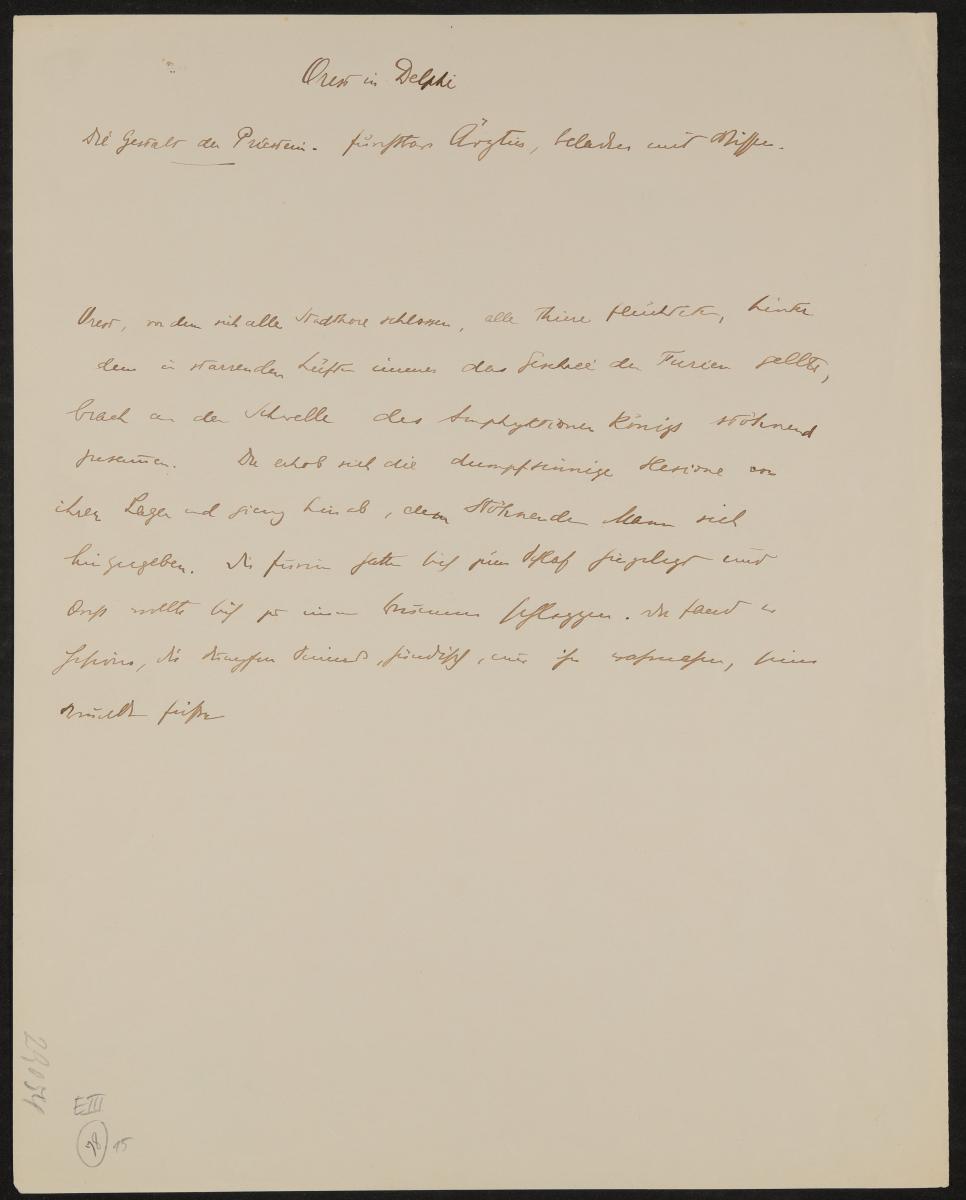 Orest in Delphi
Die Gestalt der Priesterin. furchtbare Ärztin, beladen mit Wissen.
Orest, vor dem sich alle Stadtthore schlossen, alle Thiere flüchteten, hinter
dem in starrenden Lüften immer das Geschrei der Furien gellte,
brach an der Schwelle des Amphyktionen Königs stöhnend
zusammen. Da erhob sich die dumpfsinnige Hesione von
ihrem Lager und gieng hinab, dem stöhnenden Mann sich
hinzugeben. Die Furien hatten sich zum Schlaf hingelegt und
Orest wollte sich zu einem Brunnen schleppen. Da fand er
Hesione, die dumpfen Sinnes, hündisch, ihm
E III
78 15
29054